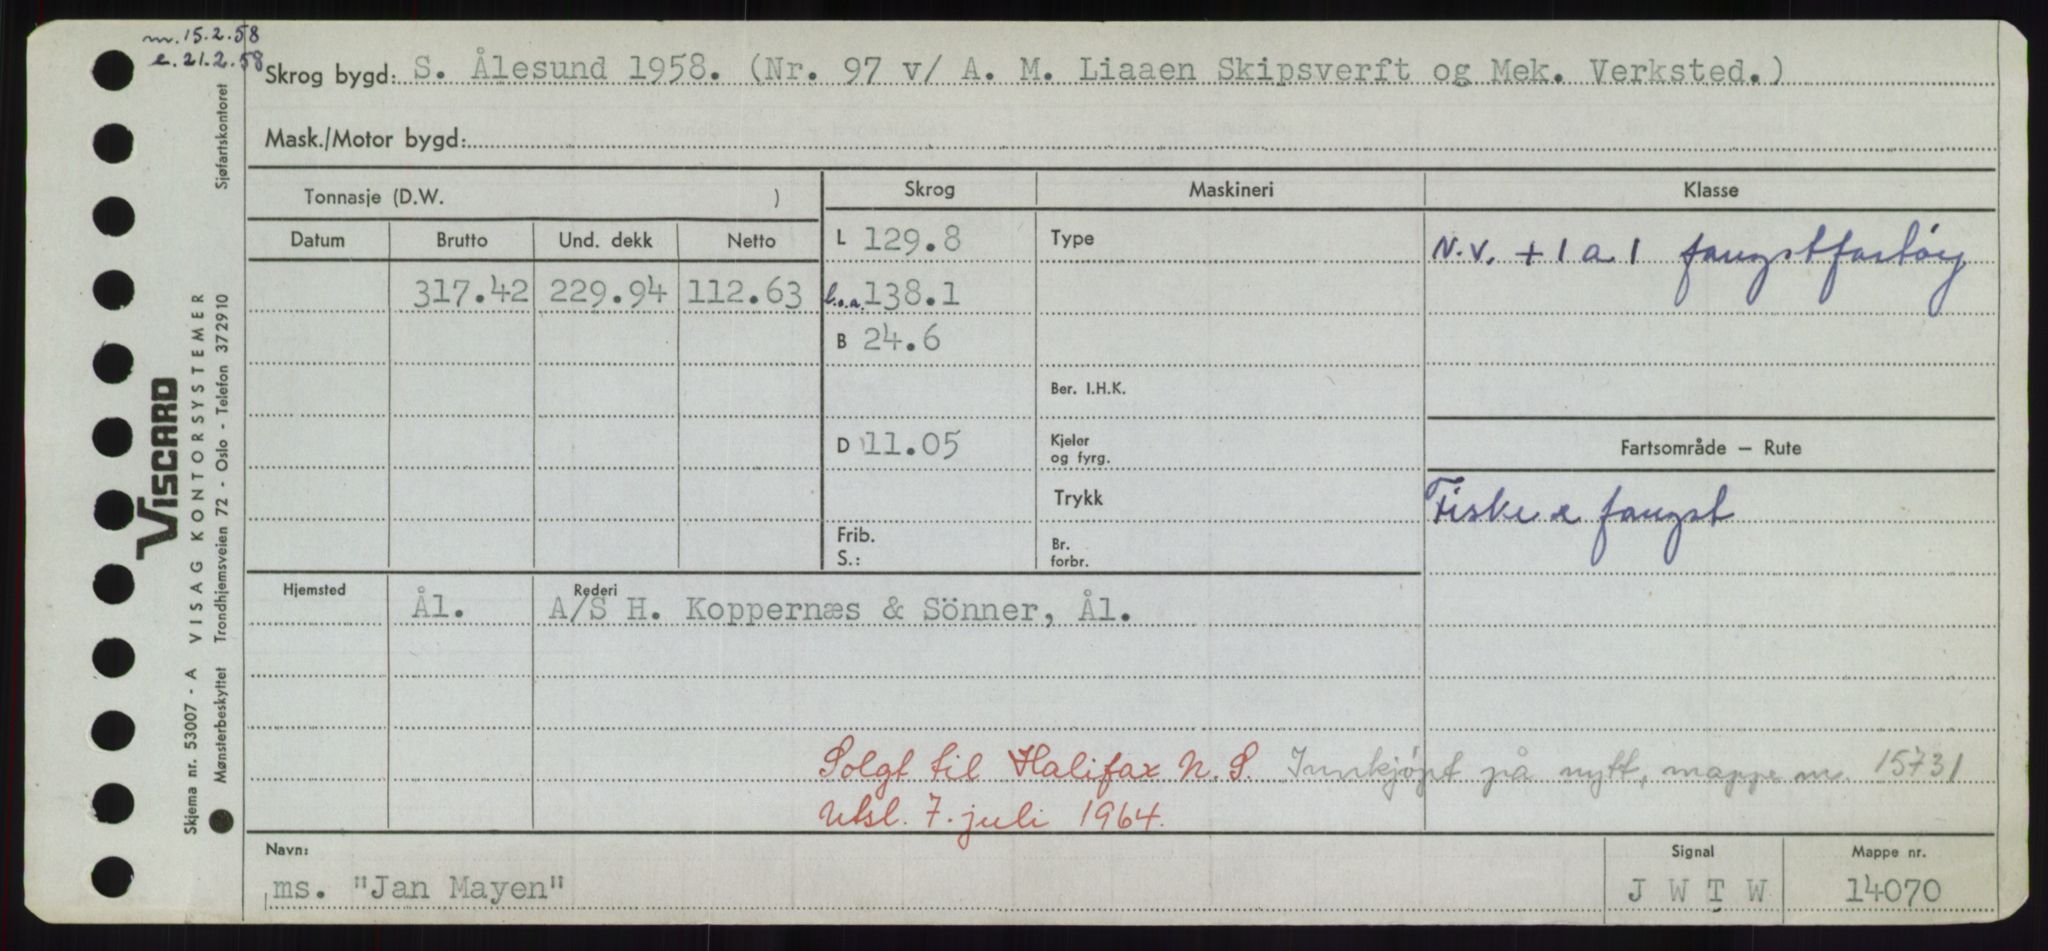 m. 15.2.58
e. 21.2.58
Skrog bygd: S. Ålesund 1958. (Nr. 97 v/ A. M. Liaaen Skipsverft og Mek. Verksted.)
Mask./Motor bygd:
Tonnasje (D.W. )
Skrog Maskineri Klasse
Datum Brutto Und. dekk Netto
L 129.8 Type N.V. + 1 a 1 fangstfartøy
317.42 229.94 112.63 l.o.a. 138.1
B 24.6
Ber. I.H.K.
D 11.05 Kjeler og fyrg.
Fartsområde — Rute
Trykk Fiske & fangst
Frib.
S.:
Br. forbr.
Hjemsted Rederi
Ål. A/S H. Koppernæs & Sönner, Ål.
Solgt til Halifax N.S. Innkjøpt på nytt, mappe nr. 15731
Utsl. 7. juli 1964.
Navn: Signal Mappe nr.
ms. "Jan Mayen" J W T W 14070
VISCARD
Skjema nr. 53007 - A VISAG KONTORSYSTEMER
Mønsterbeskyttet Trondhjemsveien 72 - Oslo - Telefon 372910 Sjøfartskontoret